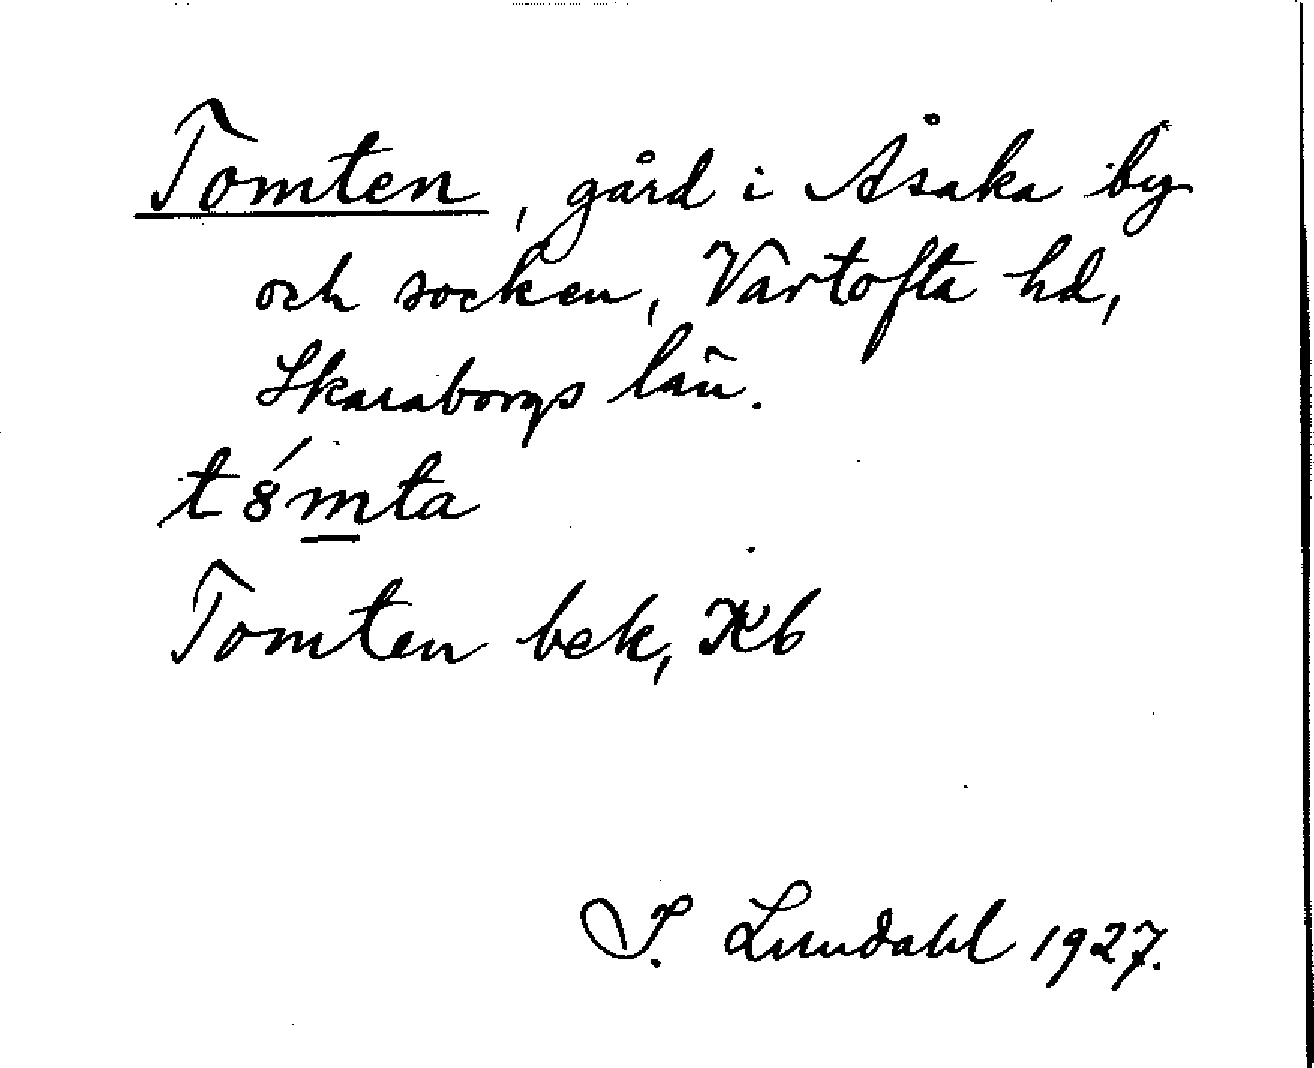 Tomten, gård i Åsaka by
och socken, Vartofta hd,
Skaraborgs län.
t8́mta
Tomten bek, Kb
I. Lundahl 1927.